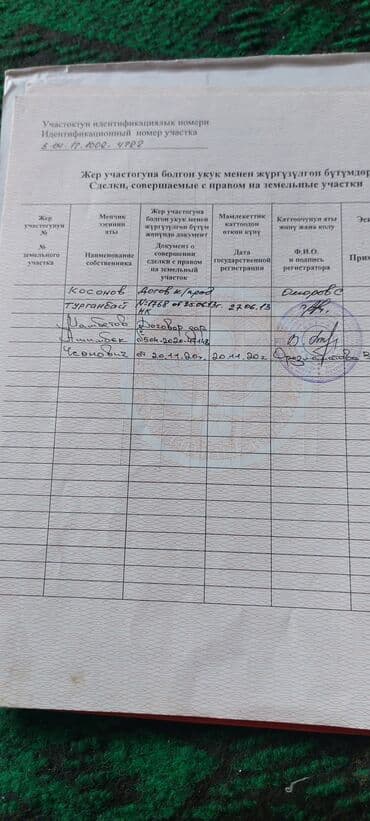 Участоктун идентификациялык номери
Идентификационный номер участка
Жер участогуна болгон укук менен жүргүзүлгөн бүтүмдөр
Сделки, совершаемые с правом на земельные участки
Жер участогунун №
№ земельного участка
Менчик ээсинин аты
Наименование собственника
Жер участогуна болгон укук менен жүргүзүлгөн бүтүм жөнүндө документ
Документ о совершении сделки с правом на земельный участок
Мамлекеттик каттоодон өткөн күнү
Дата государственной регистрации
Каттоочунун аты жөнү жана колу
Ф.И.О. и подпись регистратора
Эск
Прим
Косонов Догов к/прод Омаров С
Турганбай №1768 от 25.06.13г. 27.06.13
НК
Мамбетов Договор дар
Ашимбек
Чеонович от 20.11.20г. 20.11.20г